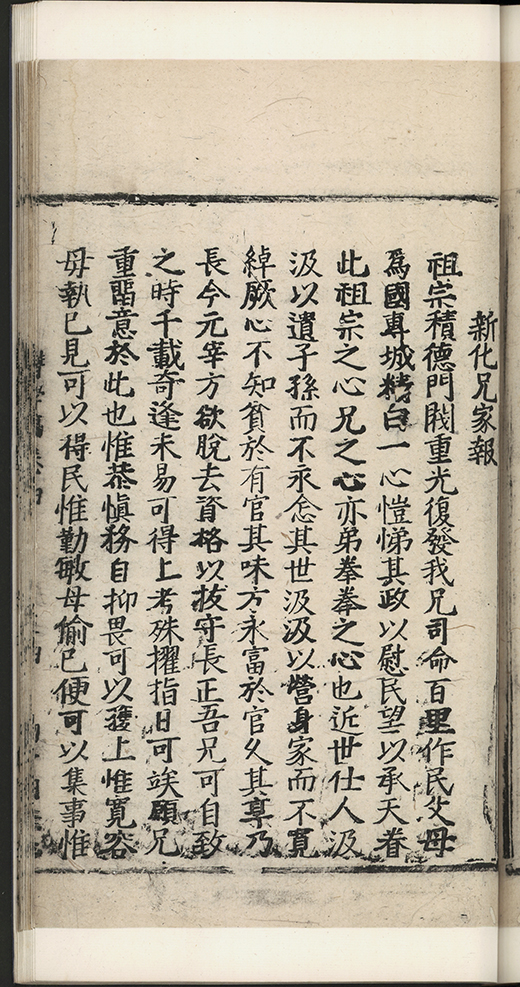 新化兄家報
祖宗積德門閥重光復發我兄司命百里作民父母
為國專城精白一心愷悌其政以慰民望以承天眷
此祖宗之心兄之心亦弟拳拳之心也近世仕人汲
汲以遺子孫而不永念其世汲汲以營身家而不寬
綽厥心不知貧於有官其味方永富於官久其享乃
長今元宰方欲脫去資格以拔守長正吾兄可自致
之時千載奇逢未易可得上考殊擢指日可竢願兄
重留意於此也惟恭慎務自抑畏可以獲上惟寬容
毋執己見可以得民惟勤敏毋偷己便可以集事惟